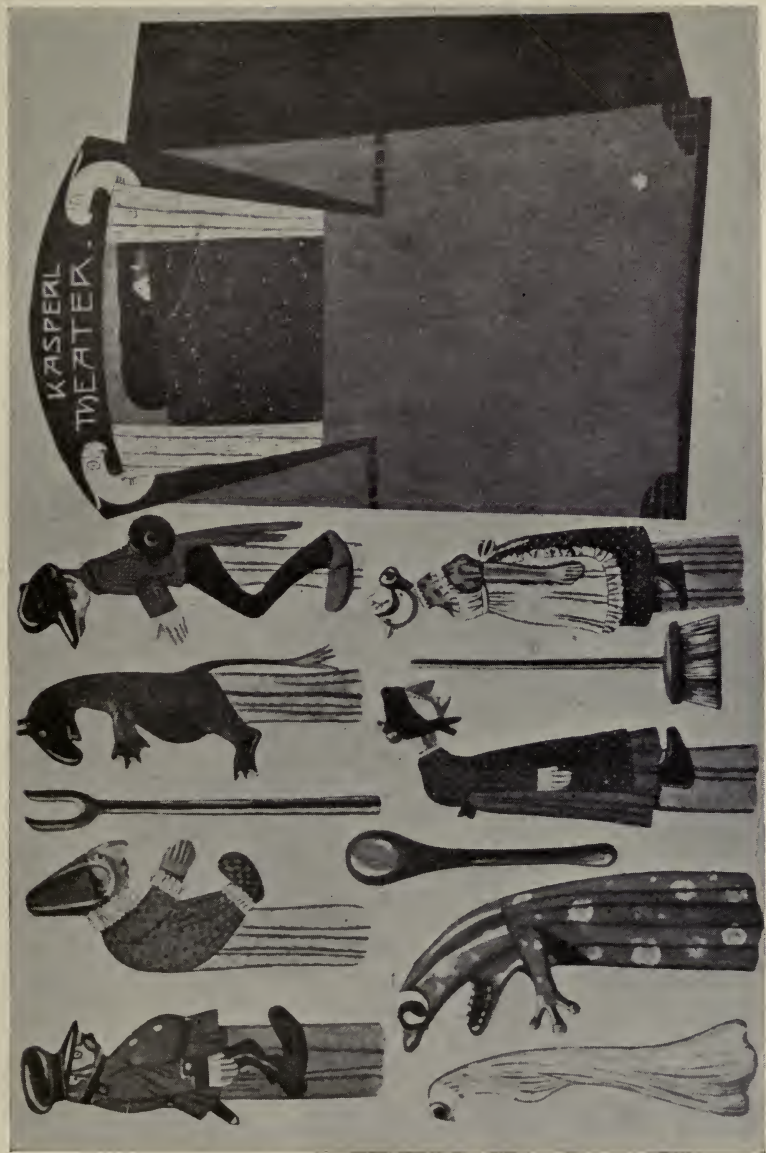 KASPERL
THEATER.